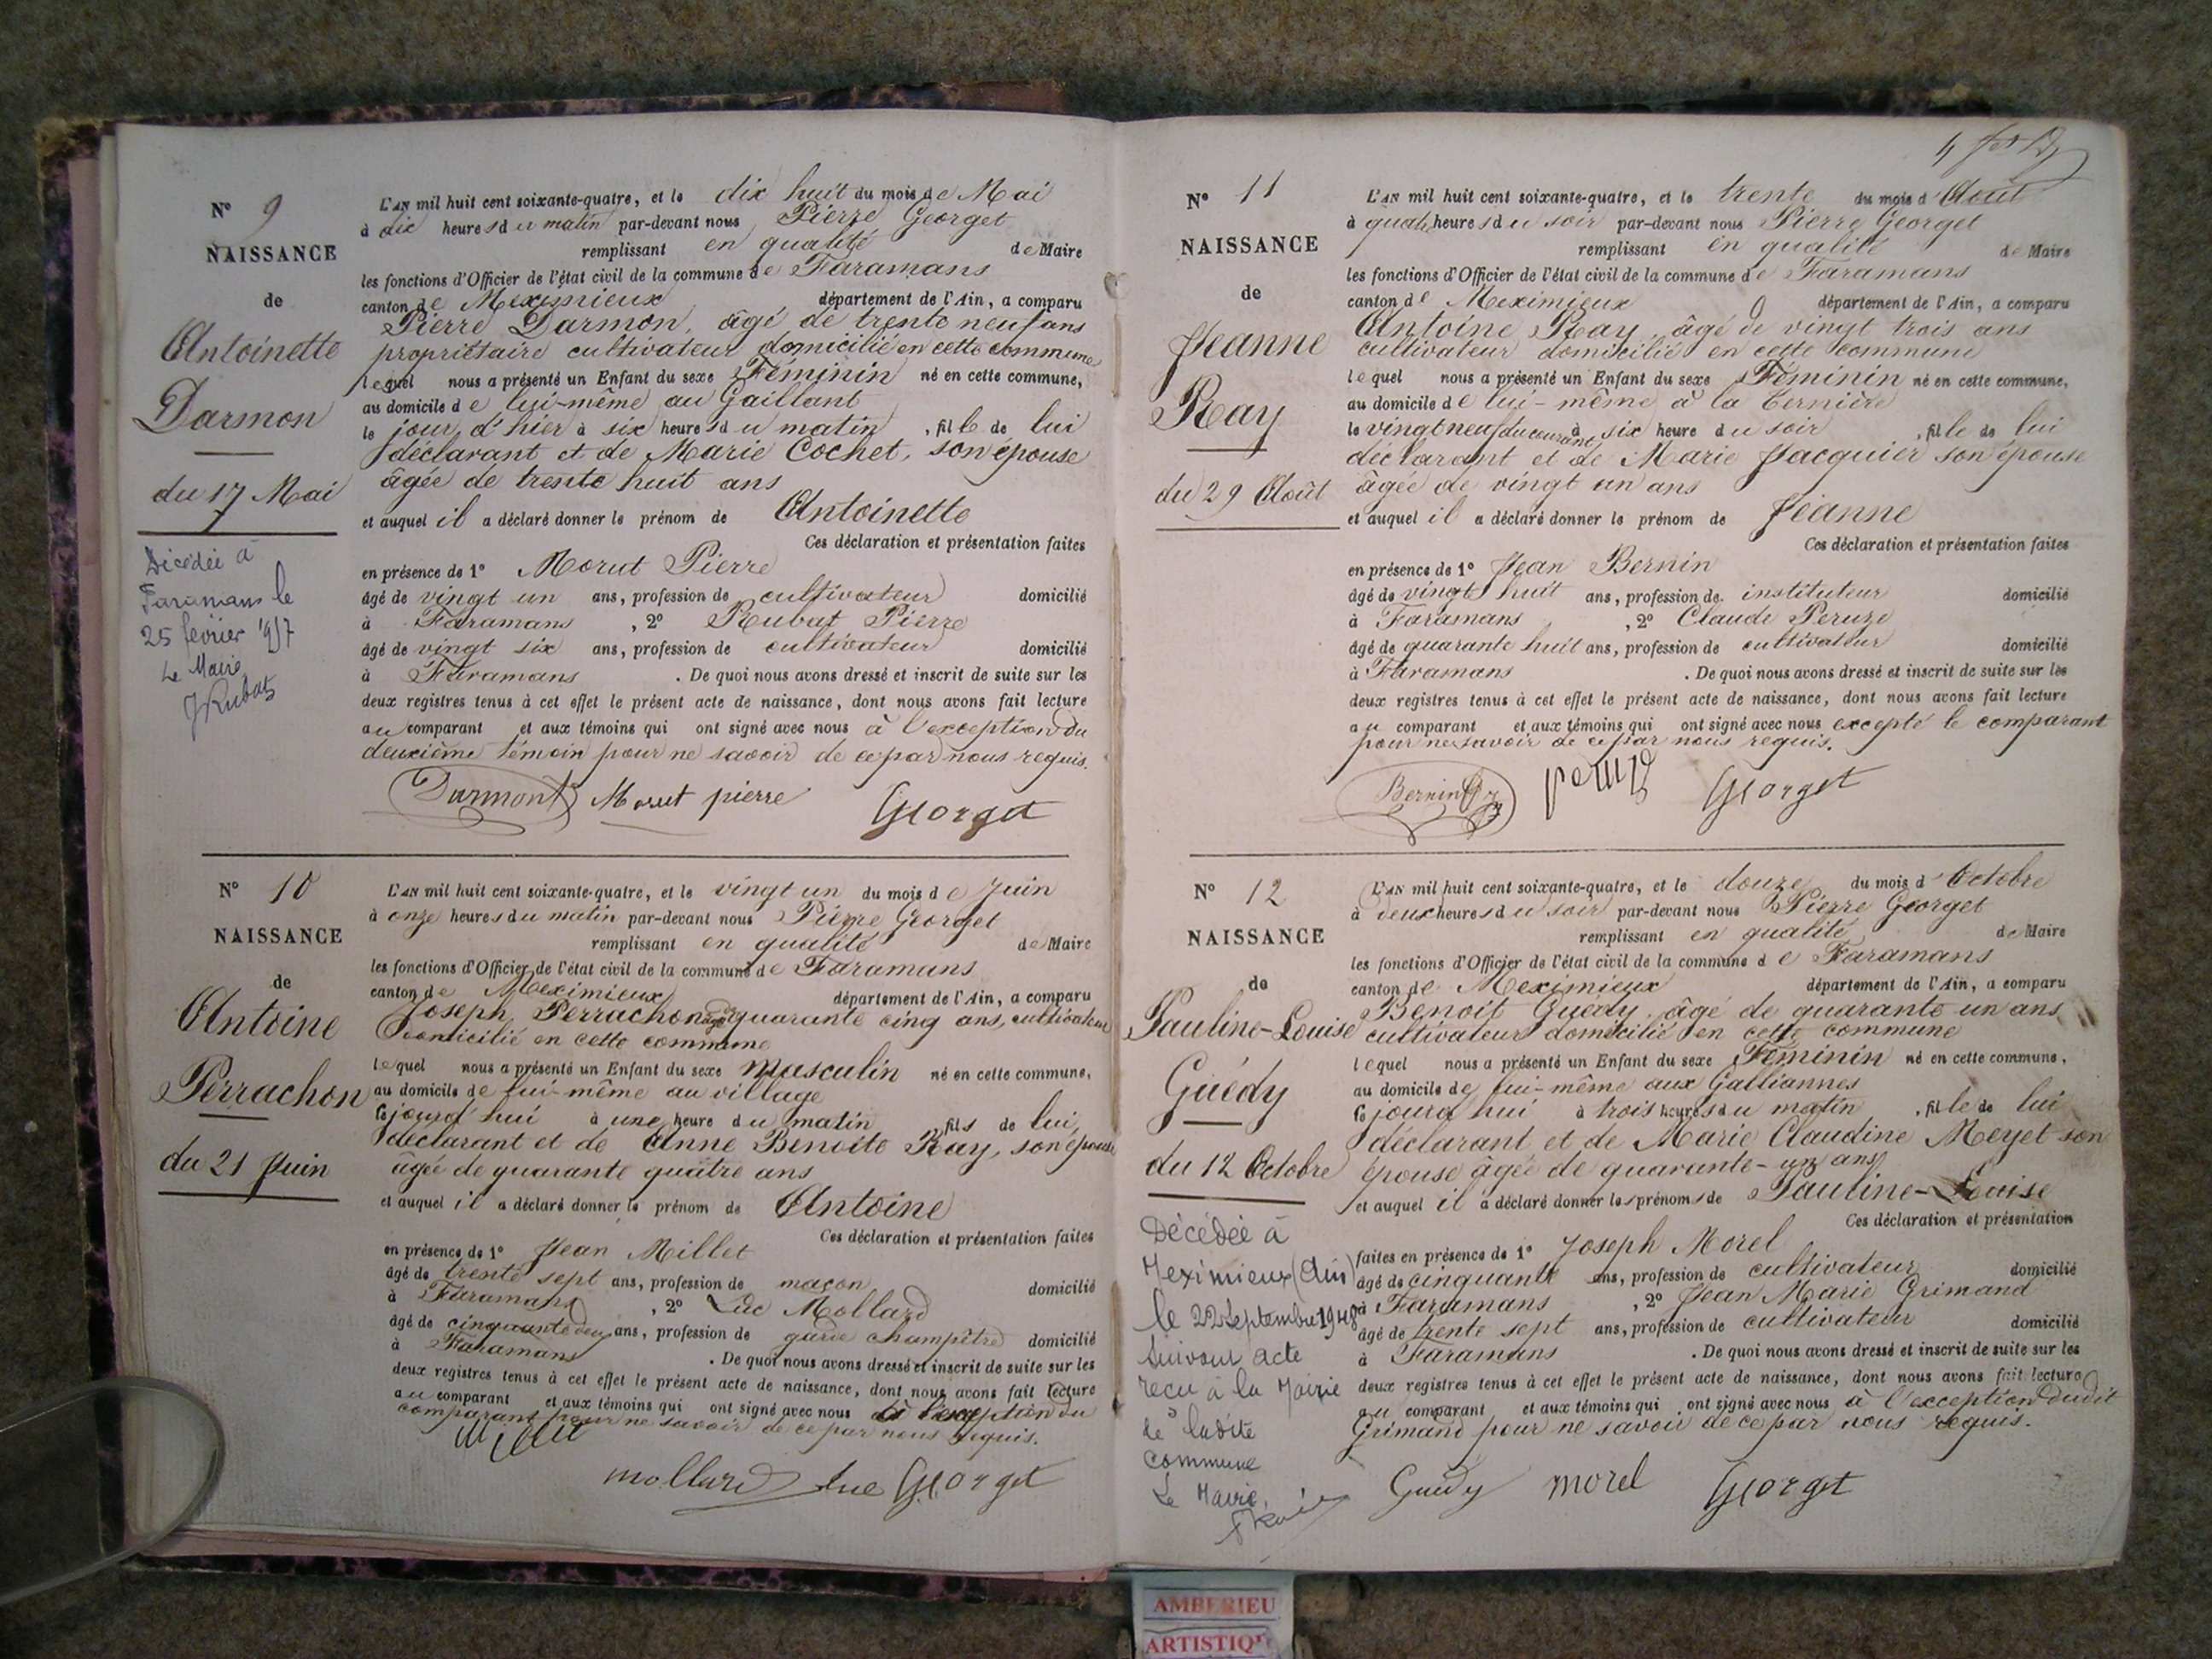 N° 9
NAISSANCE
de
Antoinette
Darmon
du 17 Mai
Décédée à
Faramans le
25 février
Le Maire
JRubat
L'AN mil huit cent soixante-quatre, et le dix huit du mois de Mai
à dix heures du matin par-devant nous Pierre Georget
remplissant en qualité de Maire
les fonctions d'Officier de l'état civil de la commune de Faramans
canton de Meximieux département de l'Ain, a comparu
Pierre Darmon, âgé de trente neuf ans
propriétaire cultivateur domicilié en cette commune
lequel nous a présenté un Enfant du sexe Féminin né en cette commune,
au domicile de lui-même au Gaillant
le jour d'hier à six heures du matin, fille de lui
déclarant et de Marie Cochet, son épouse
âgée de trente huit ans
et auquel il a déclaré donner le prénom de Antoinette
Ces déclaration et présentation faites
en présence de 1° Morut Pierre
âgé de vingt un ans, profession de cultivateur domicilié
à Faramans, 2° Rubat Pierre
âgé de vingt six ans, profession de cultivateur domicilié
à Faramans. De quoi nous avons dressé et inscrit de suite sur les
deux registres tenus à cet effet le présent acte de naissance, dont nous avons fait lecture
au comparant et aux témoins qui ont signé avec nous à l'exception du
deuxième témoin pour ne savoir de ce par nous requis.
Darmont Morut pierre Georget
N° 10
NAISSANCE
de
Antoine
Perrachon
du 21 Juin
L'AN mil huit cent soixante-quatre, et le vingt un du mois de Juin
à onze heures du matin par-devant nous Pierre Georget
remplissant en qualité de Maire
les fonctions d'Officier de l'état civil de la commune de Faramans
canton de Meximieux département de l'Ain, a comparu
Joseph Perrachon âgé quarante cinq ans, cultivateur
domicilié en cette commune
lequel nous a présenté un Enfant du sexe masculin né en cette commune,
au domicile de lui-même au village
le jourd'hui à une heure du matin fils de lui
déclarant et de Anne Benoite Ray, son épouse
âgée de quarante quatre ans
et auquel il a déclaré donner le prénom de Antoine
Ces déclaration et présentation faites
en présence de 1° Jean Millet
âgé de trente sept ans, profession de maçon domicilié
à Faramans, 2° Luc Mollard
âgé de cinquante deux ans, profession de garde champêtre domicilié
à Faramans. De quoi nous avons dressé et inscrit de suite sur les
deux registres tenus à cet effet le présent acte de naissance, dont nous avons fait lecture
au comparant et aux témoins qui ont signé avec nous à l'exception du
comparant pour ne savoir de ce par nous requis.
Millet
mollard luc Georget
N° 11
NAISSANCE
de
Jeanne
Ray
du 29 Août
L'AN mil huit cent soixante-quatre, et le trente du mois d'Août
à quatre heures du soir par-devant nous Pierre Georget
remplissant en qualité de Maire
les fonctions d'Officier de l'état civil de la commune de Faramans
canton de Meximieux département de l'Ain, a comparu
Antoine Ray, âgé de vingt trois ans
cultivateur domicilié en cette commune
lequel nous a présenté un Enfant du sexe Féminin né en cette commune,
au domicile de lui-même à la Bernière
le vingt neuf du courant à six heure du soir, fille de lui
déclarant et de Marie Jacquier son épouse
âgée de vingt un ans
et auquel il a déclaré donner le prénom de Jeanne
Ces déclaration et présentation faites
en présence de 1° Jean Bernin
âgé de vingt huit ans, profession de instituteur domicilié
à Faramans, 2° Claude Peruze
âgé de quarante huit ans, profession de cultivateur domicilié
à Faramans. De quoi nous avons dressé et inscrit de suite sur les
deux registres tenus à cet effet le présent acte de naissance, dont nous avons fait lecture
au comparant et aux témoins qui ont signé avec nous excepté le comparant
pour ne savoir de ce par nous requis.
Bernin peruze Georget
N° 12
NAISSANCE
de
Pauline-Louise
Guédy
du 12 Octobre
Décédée à
Meximieux (Ain)
le 22 Septembre 1948
Suivant acte
reçu à la Mairie
de ladite
commune
Le Maire,
L'AN mil huit cent soixante-quatre, et le douze du mois d'Octobre
à deux heures du soir par-devant nous Pierre Georget
remplissant en qualité de Maire
les fonctions d'Officier de l'état civil de la commune de Faramans
canton de Meximieux département de l'Ain, a comparu
Benoit Guédy, âgé de quarante un ans
cultivateur domicilié en cette commune
lequel nous a présenté un Enfant du sexe Féminin né en cette commune,
au domicile de lui-même aux Galliannes
le jourd'hui à trois heures du matin, fille de lui
déclarant et de Marie Claudine Meyet son
épouse âgée de quarante-un ans
et auquel il a déclaré donner les prénoms de Pauline-Louise
Ces déclaration et présentation
faites en présence de 1° Joseph Morel
âgé de cinquante ans, profession de cultivateur domicilié
à Faramans, 2° Jean Marie Grimand
âgé de trente sept ans, profession de cultivateur domicilié
à Faramans. De quoi nous avons dressé et inscrit de suite sur les
deux registres tenus à cet effet le présent acte de naissance, dont nous avons fait lecture
au comparant et aux témoins qui ont signé avec nous à l'exception dudit
Grimand pour ne savoir de ce par nous requis.
Guédy morel Georget
AMBERIEU
ARTISTIQ